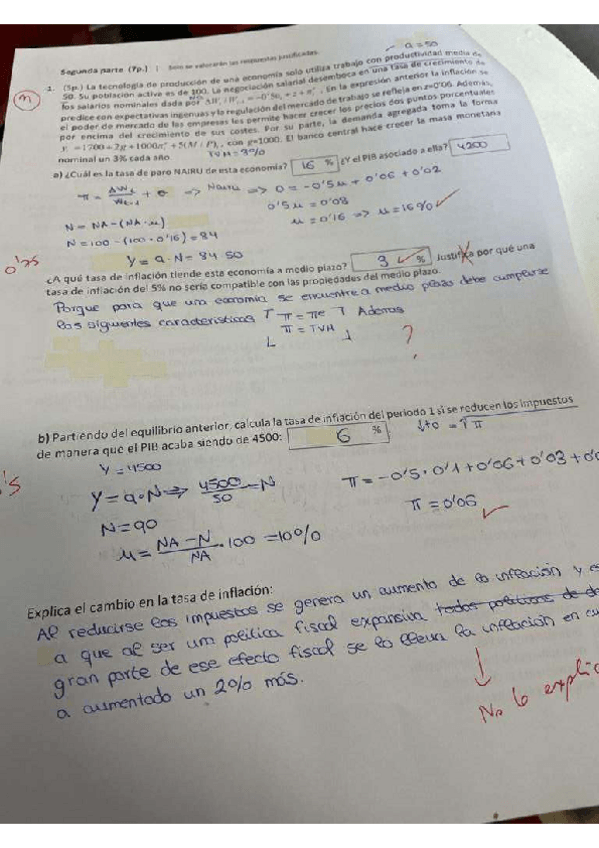 a = 50
Segunda parte (7p.) : Solo se valorarán las respuestas justificadas.
m
1. (5p.) La tecnología de producción de una economía solo utiliza trabajo con productividad media de
50. Su población activa es de 100. La negociación salarial desemboca en una tasa de crecimiento de
los salarios nominales dada por . En la expresión anterior la inflación se
predice con expectativas ingenuas y la regulación del mercado de trabajo se refleja en z=0'06. Además,
el poder de mercado de las empresas les permite hacer crecer los precios dos puntos porcentuales
por encima del crecimiento de sus costes. Por su parte, la demanda agregada toma la forma
con g=1000. El banco central hace crecer la masa monetaria
nominal un 3% cada año
TVM = 3%
a) ¿Cuál es la tasa de paro NAIRU de esta economía? 16 % ¿Y el PIB asociado a ella? 4200
=> NAIRU => 0 = -0'5u + 0'06 + 0'02
0'5u = 0'08
N = NA - (NA · u)
u = 0'16 => u = 16%
N = 100 - (100 · 0'16) = 84
Y = a · N = 84 · 50
0'75
¿A qué tasa de inflación tiende esta economía a medio plazo? 3 % Justifica por qué una
tasa de inflación del 5% no sería compatible con las propiedades del medio plazo.
Porque para que una economía se encuentre a medio plazo debe cumplirse
las siguientes características π = πe Además
π = TVM
?
b) Partiendo del equilibrio anterior, calcula la tasa de inflación del periodo 1 si se reducen los impuestos
de manera que el PIB acaba siendo de 4500: 6 %
Y = 4500
Y = a · N => 4500/50 = N
π = -0'5 · 0'1 + 0'06 + 0'03 +
N = 90
π = 0'06
u = NA - N / NA · 100 = 10%
Explica el cambio en la tasa de inflación:
Al reducirse los impuestos se genera un aumento de la inflación y
a que al ser un política fiscal expansiva todas políticas de
gran parte de ese efecto fiscal se lo lleva la inflación en
a aumentado un 2% más.
No lo explic